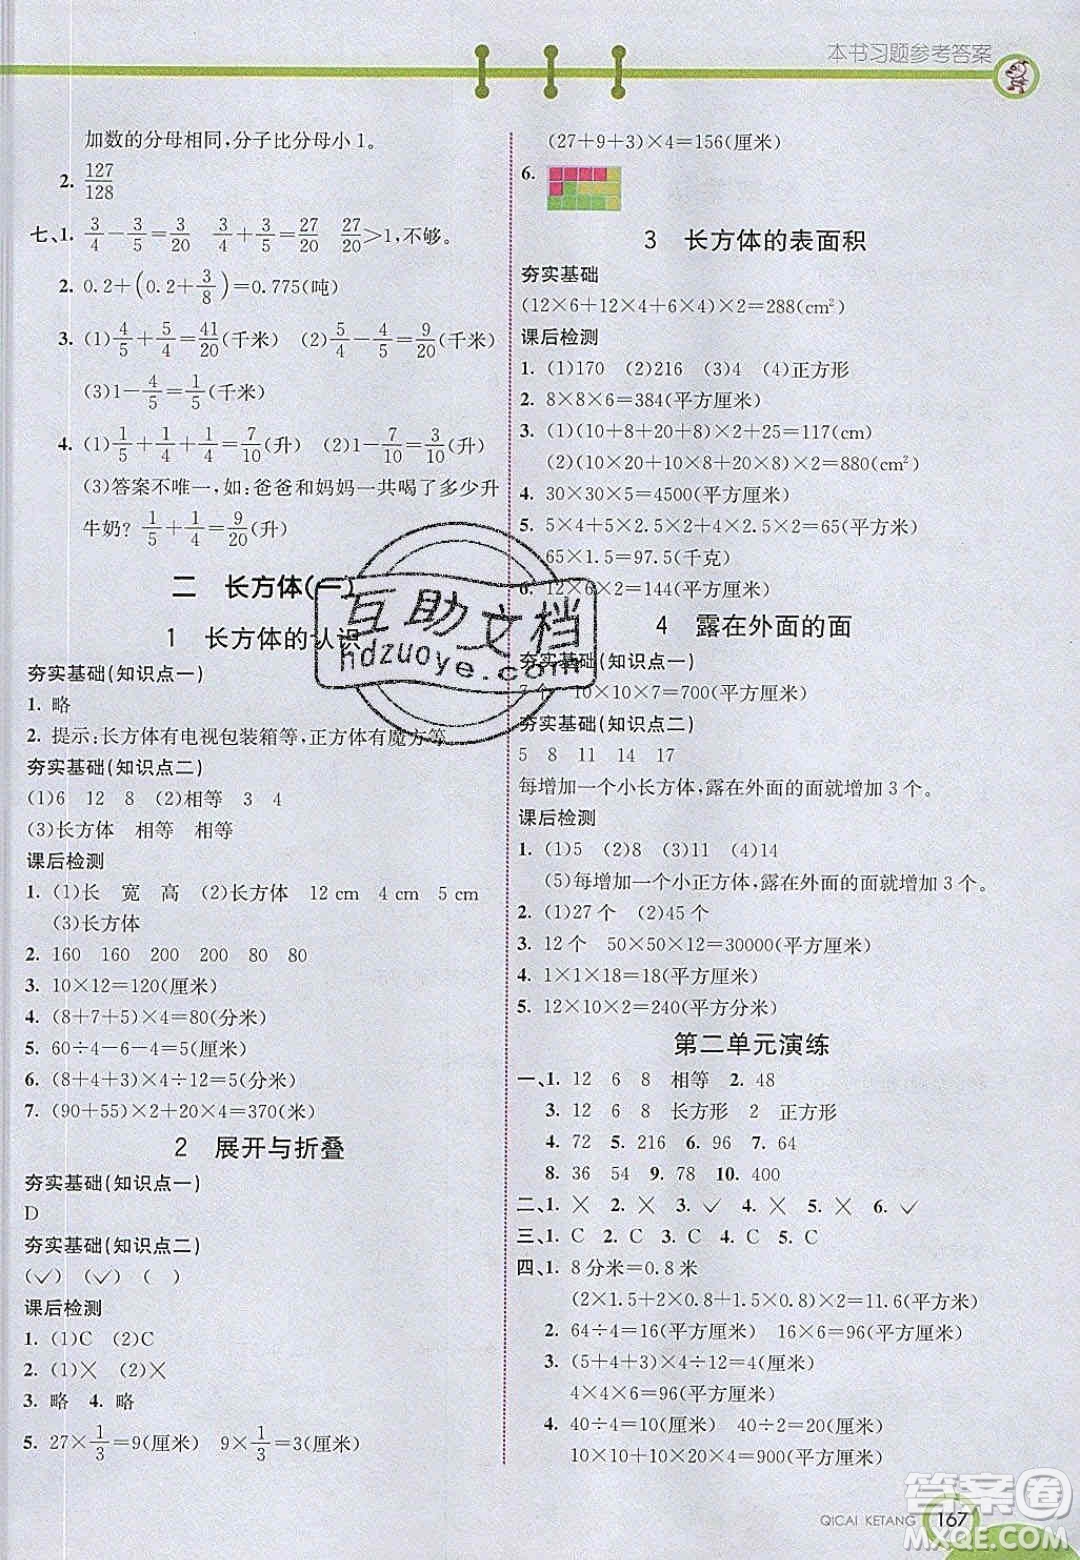 本书习题参考答案
加数的分母相同,分子比分母小1。
2. 127/128
七、1. 3/4-3/5=3/20 3/4+3/5=27/20 27/20>1,不够。
2. 0.2+(0.2+3/8)=0.775(吨)
3. (1)4/5+5/4=41/20(千米) (2)5/4-4/5=9/20(千米)
(3)1-4/5=1/5(千米)
4. (1)1/5+1/4+1/4=7/10(升) (2)1-7/10=3/10(升)
(3)答案不唯一,如:爸爸和妈妈一共喝了多少升
牛奶? 1/5+1/4=9/20(升)
二 长方体(一)
1 长方体的认识
夯实基础(知识点一)
1. 略
2. 提示:长方体有电视包装箱等,正方体有魔方等
夯实基础(知识点二)
(1)6 12 8 (2)相等 3 4
(3)长方体 相等 相等
课后检测
1. (1)长 宽 高 (2)长方体 12 cm 4 cm 5 cm
(3)长方体
2. 160 160 200 200 80 80
3. 10×12=120(厘米)
4. (8+7+5)×4=80(分米)
5. 60÷4-6-4=5(厘米)
6. (8+4+3)×4÷12=5(分米)
7. (90+55)×2+20×4=370(米)
2 展开与折叠
夯实基础(知识点一)
D
夯实基础(知识点二)
(✓) (✓) ( )
课后检测
1. (1)C (2)C
2. (1)× (2)×
3. 略 4. 略
5. 27×1/3=9(厘米) 9×1/3=3(厘米)
(27+9+3)×4=156(厘米)
6.
3 长方体的表面积
夯实基础
(12×6+12×4+6×4)×2=288(cm²)
课后检测
1. (1)170 (2)216 (3)4 (4)正方形
2. 8×8×6=384(平方厘米)
3. (1)(10+8+20+8)×2+25=117(cm)
(2)(10×20+10×8+20×8)×2=880(cm²)
4. 30×30×5=4500(平方厘米)
5. 5×4+5×2.5×2+4×2.5×2=65(平方米)
65×1.5=97.5(千克)
6. 12×6×2=144(平方厘米)
4 露在外面的面
夯实基础(知识点一)
7个 10×10×7=700(平方厘米)
夯实基础(知识点二)
5 8 11 14 17
每增加一个小长方体,露在外面的面就增加3个。
课后检测
1. (1)5 (2)8 (3)11 (4)14
(5)每增加一个小正方体,露在外面的面就增加3个。
2. (1)27个 (2)45个
3. 12个 50×50×12=30000(平方厘米)
4. 1×1×18=18(平方厘米)
5. 12×10×2=240(平方分米)
第二单元演练
一、1. 12 6 8 相等 2. 48
3. 12 6 8 长方形 2 正方形
4. 72 5. 216 6. 96 7. 64
8. 36 54 9. 78 10. 400
二、1. × 2. × 3. ✓ 4. × 5. × 6. ✓
三、1. C 2. C 3. C 4. C 5. C
四、1. 8分米=0.8米
(2×1.5+2×0.8+1.5×0.8)×2=11.6(平方米)
2. 64÷4=16(平方厘米) 16×6=96(平方厘米)
3. (5+4+3)×4÷12=4(厘米)
4×4×6=96(平方厘米)
4. 40÷4=10(厘米) 40÷2=20(厘米)
10×10+10×20×4=900(平方厘米)
QICAI KETANG 167
互助文档
hdzuoye.com
答案圈
MXQE.COM